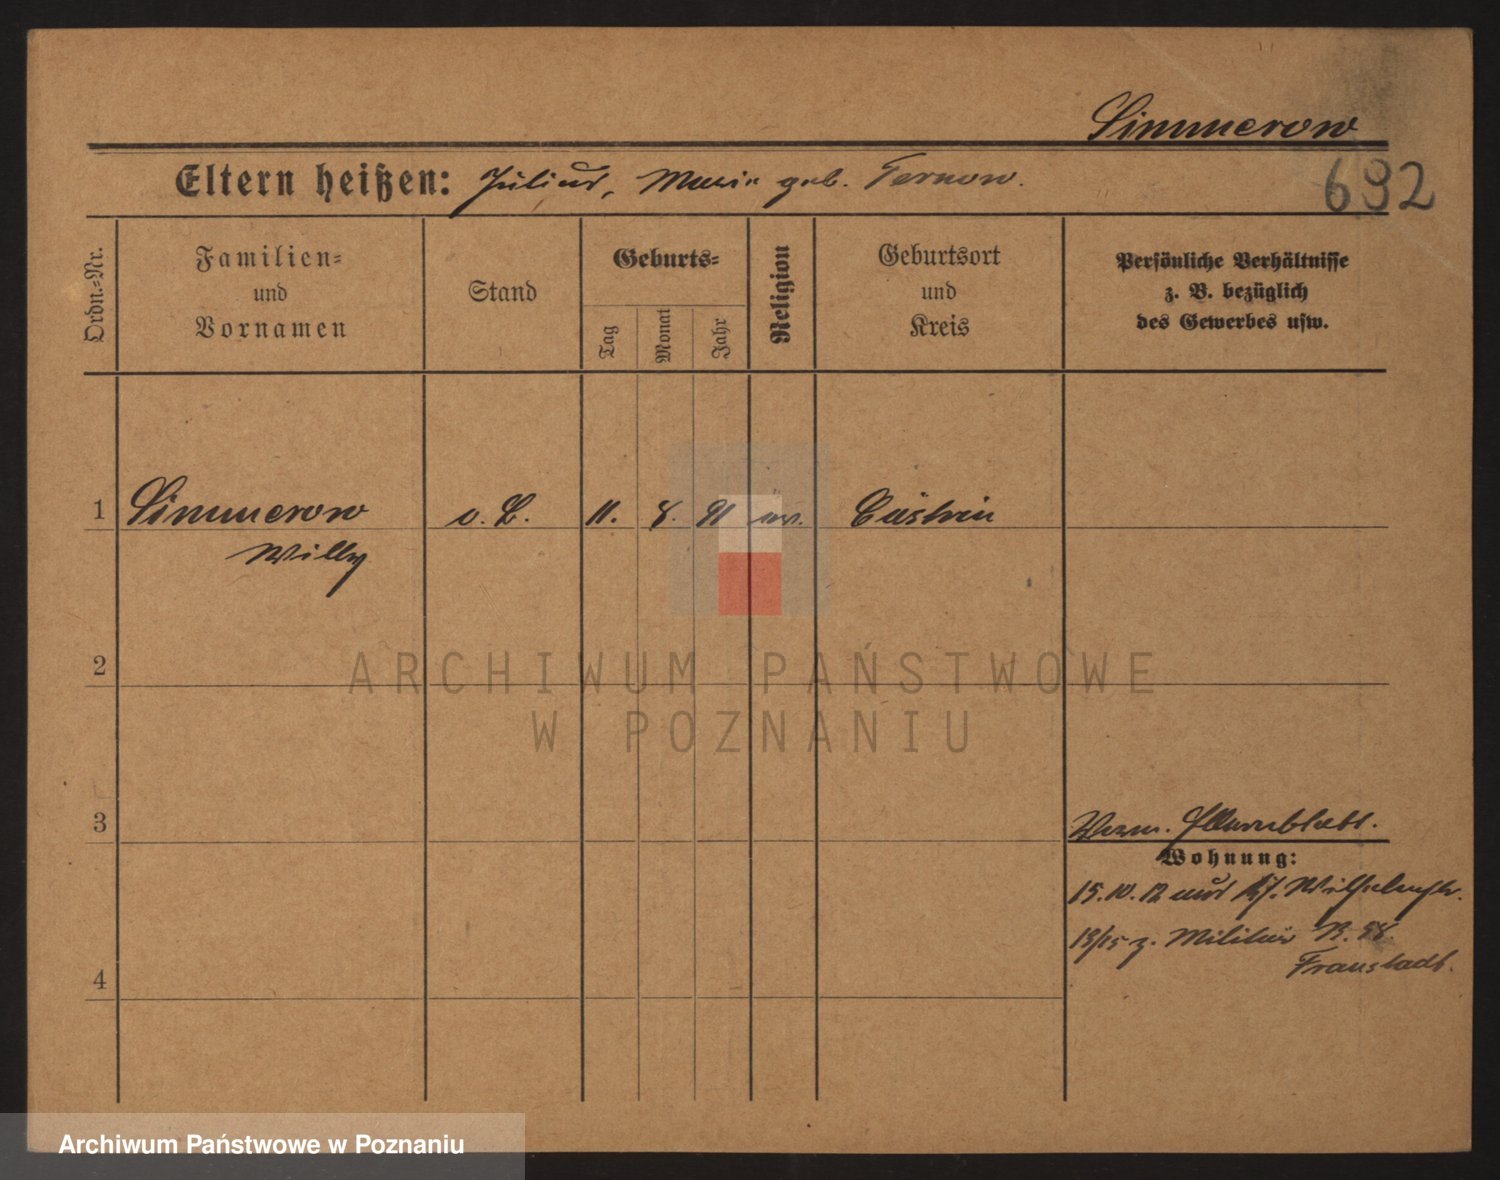 Simmerow
Eltern heißen: Julius, Marie geb. Ternow.
692
Ordn.=Nr.
Familien=
und
Vornamen
Stand
Geburts=
Tag
Monat
Jahr
Religion
Geburtsort
und
Kreis
Persönliche Verhältnisse
z. B. bezüglich
des Gewerbes usw.
1 Simmerow v. L. 11. 8. 91 ev. Cüstrin
Willy
ARCHIWUM PAŃSTWOWE
W POZNANIU
2
3
Wohnung:
15.10.12 aus 17. Wilhelmstr.
z. Militär R. 58
Fraustadt.
4
Archiwum Państwowe w Poznaniu